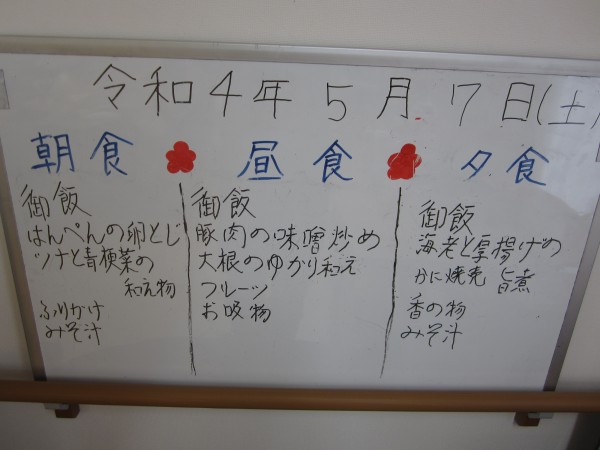 令和4年5月7日(土)
朝食
御飯
はんぺんの卵とじ
ツナと青梗菜の
和え物
ふりかけ
みそ汁
昼食
御飯
豚肉の味噌炒め
大根のゆかり和え
フルーツ
お吸物
夕食
御飯
海老と厚揚げの
旨煮
かに焼売
香の物
みそ汁